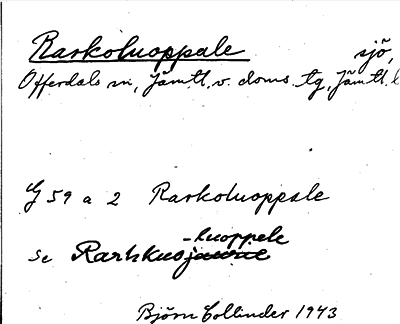 Rarkoluoppale sjö,
Offerdals sn, Jämtl. v. doms. tg, Jämtl. l
G 59 a 2 Rarkoluoppale
-luoppele
se Rarhkusjaurie
Björn Collinder 1943